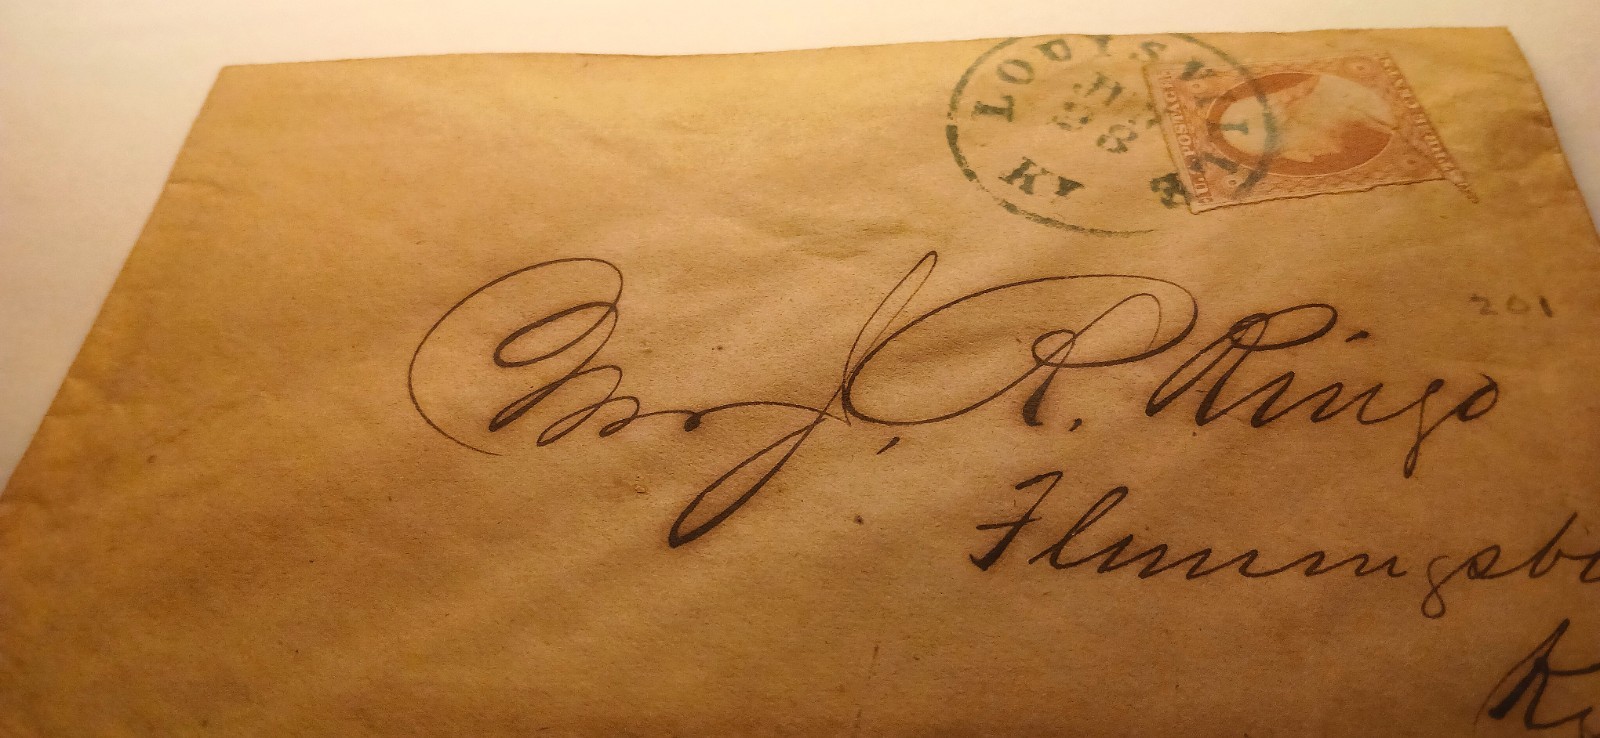 LOUISVILLE
KY
U.S. POSTAGE
THREE CENTS
201
Mr J. R. Ringo
Flemingsbu
Ky